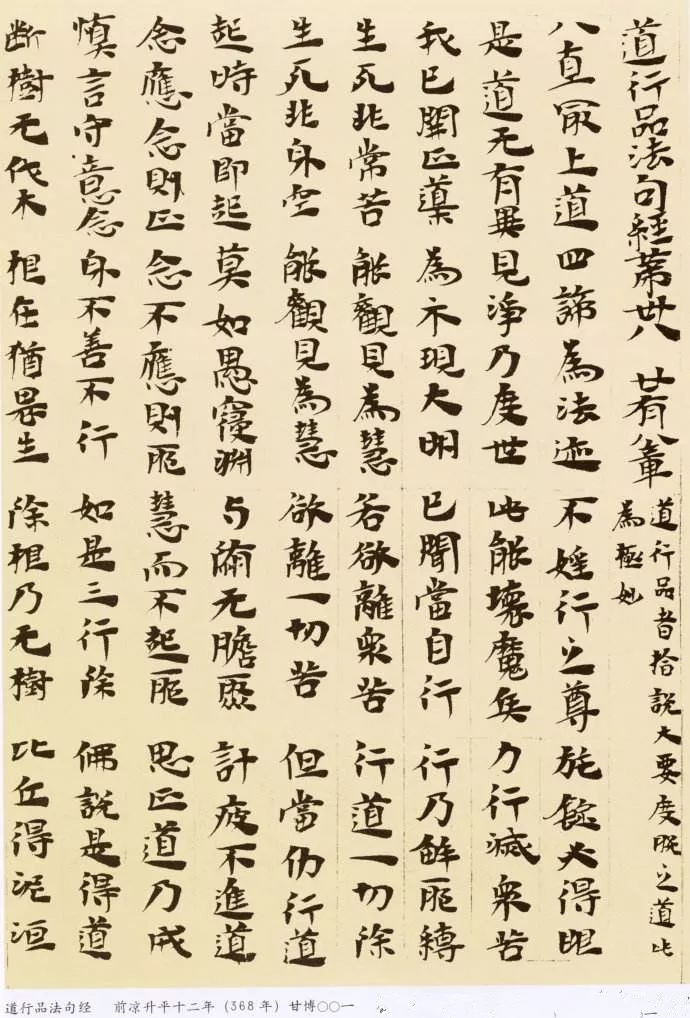 道行品法句經苐卅八 廿有八章 道行品者指說大要度脫之道此
為極妙
八直冣上道 四諦為法迹 不婬行之尊 施鐙必得眼
是道无有異 見淨乃度世 此能壞魔兵 力行滅衆苦
我已開正道 為示現大明 已聞當自行 行乃解耶縛
生死非常苦 能觀見為慧 若欲離衆苦 行道一切除
生死非身空 能觀見為慧 欲離一切苦 但當仂行道
起時當即起 莫如愚覆淵 与墮无瞻聚 計疲不進道
念應念則正 念不應則耶 慧而不起耶 思正道乃成
慎言守意念 身不善不行 如是三行除 佛說是得道
断樹无伐木 根在猶生 除根乃无樹 比丘得泥洹
道行品法句经 前凉升平十二年（368年）甘博〇〇一
一